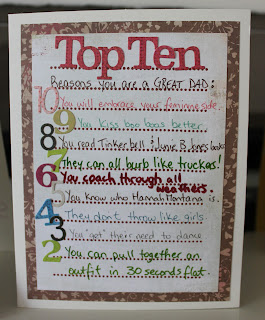 Top Ten
Reasons you are a GREAT DAD:
10 You will embrace your feminine side.
9 You kiss boo boos better.
8 You read Tinkerbell & Junie B. Jones books
7 They can all burb like truckas!
6 You coach through all
weathers.
5 You know who Hannah Montana is.
4 They don't throw like girls
3 You "get" their need to dance
2 You can pull together an
outfit in 30 seconds flat.